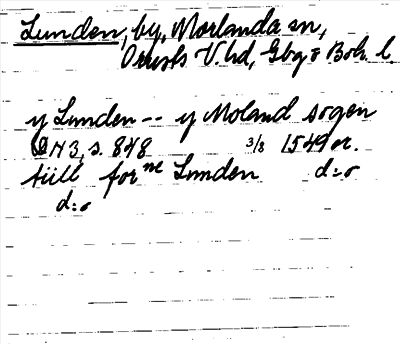 Lunden, by, Morlanda sn,
Orusts V. hd, Gbg o Boh. l.
y Lunden -- y Moland sogen
DN 3, s. 848 3/8 1549 or.
tiill for ne Lunden d:o
d:o